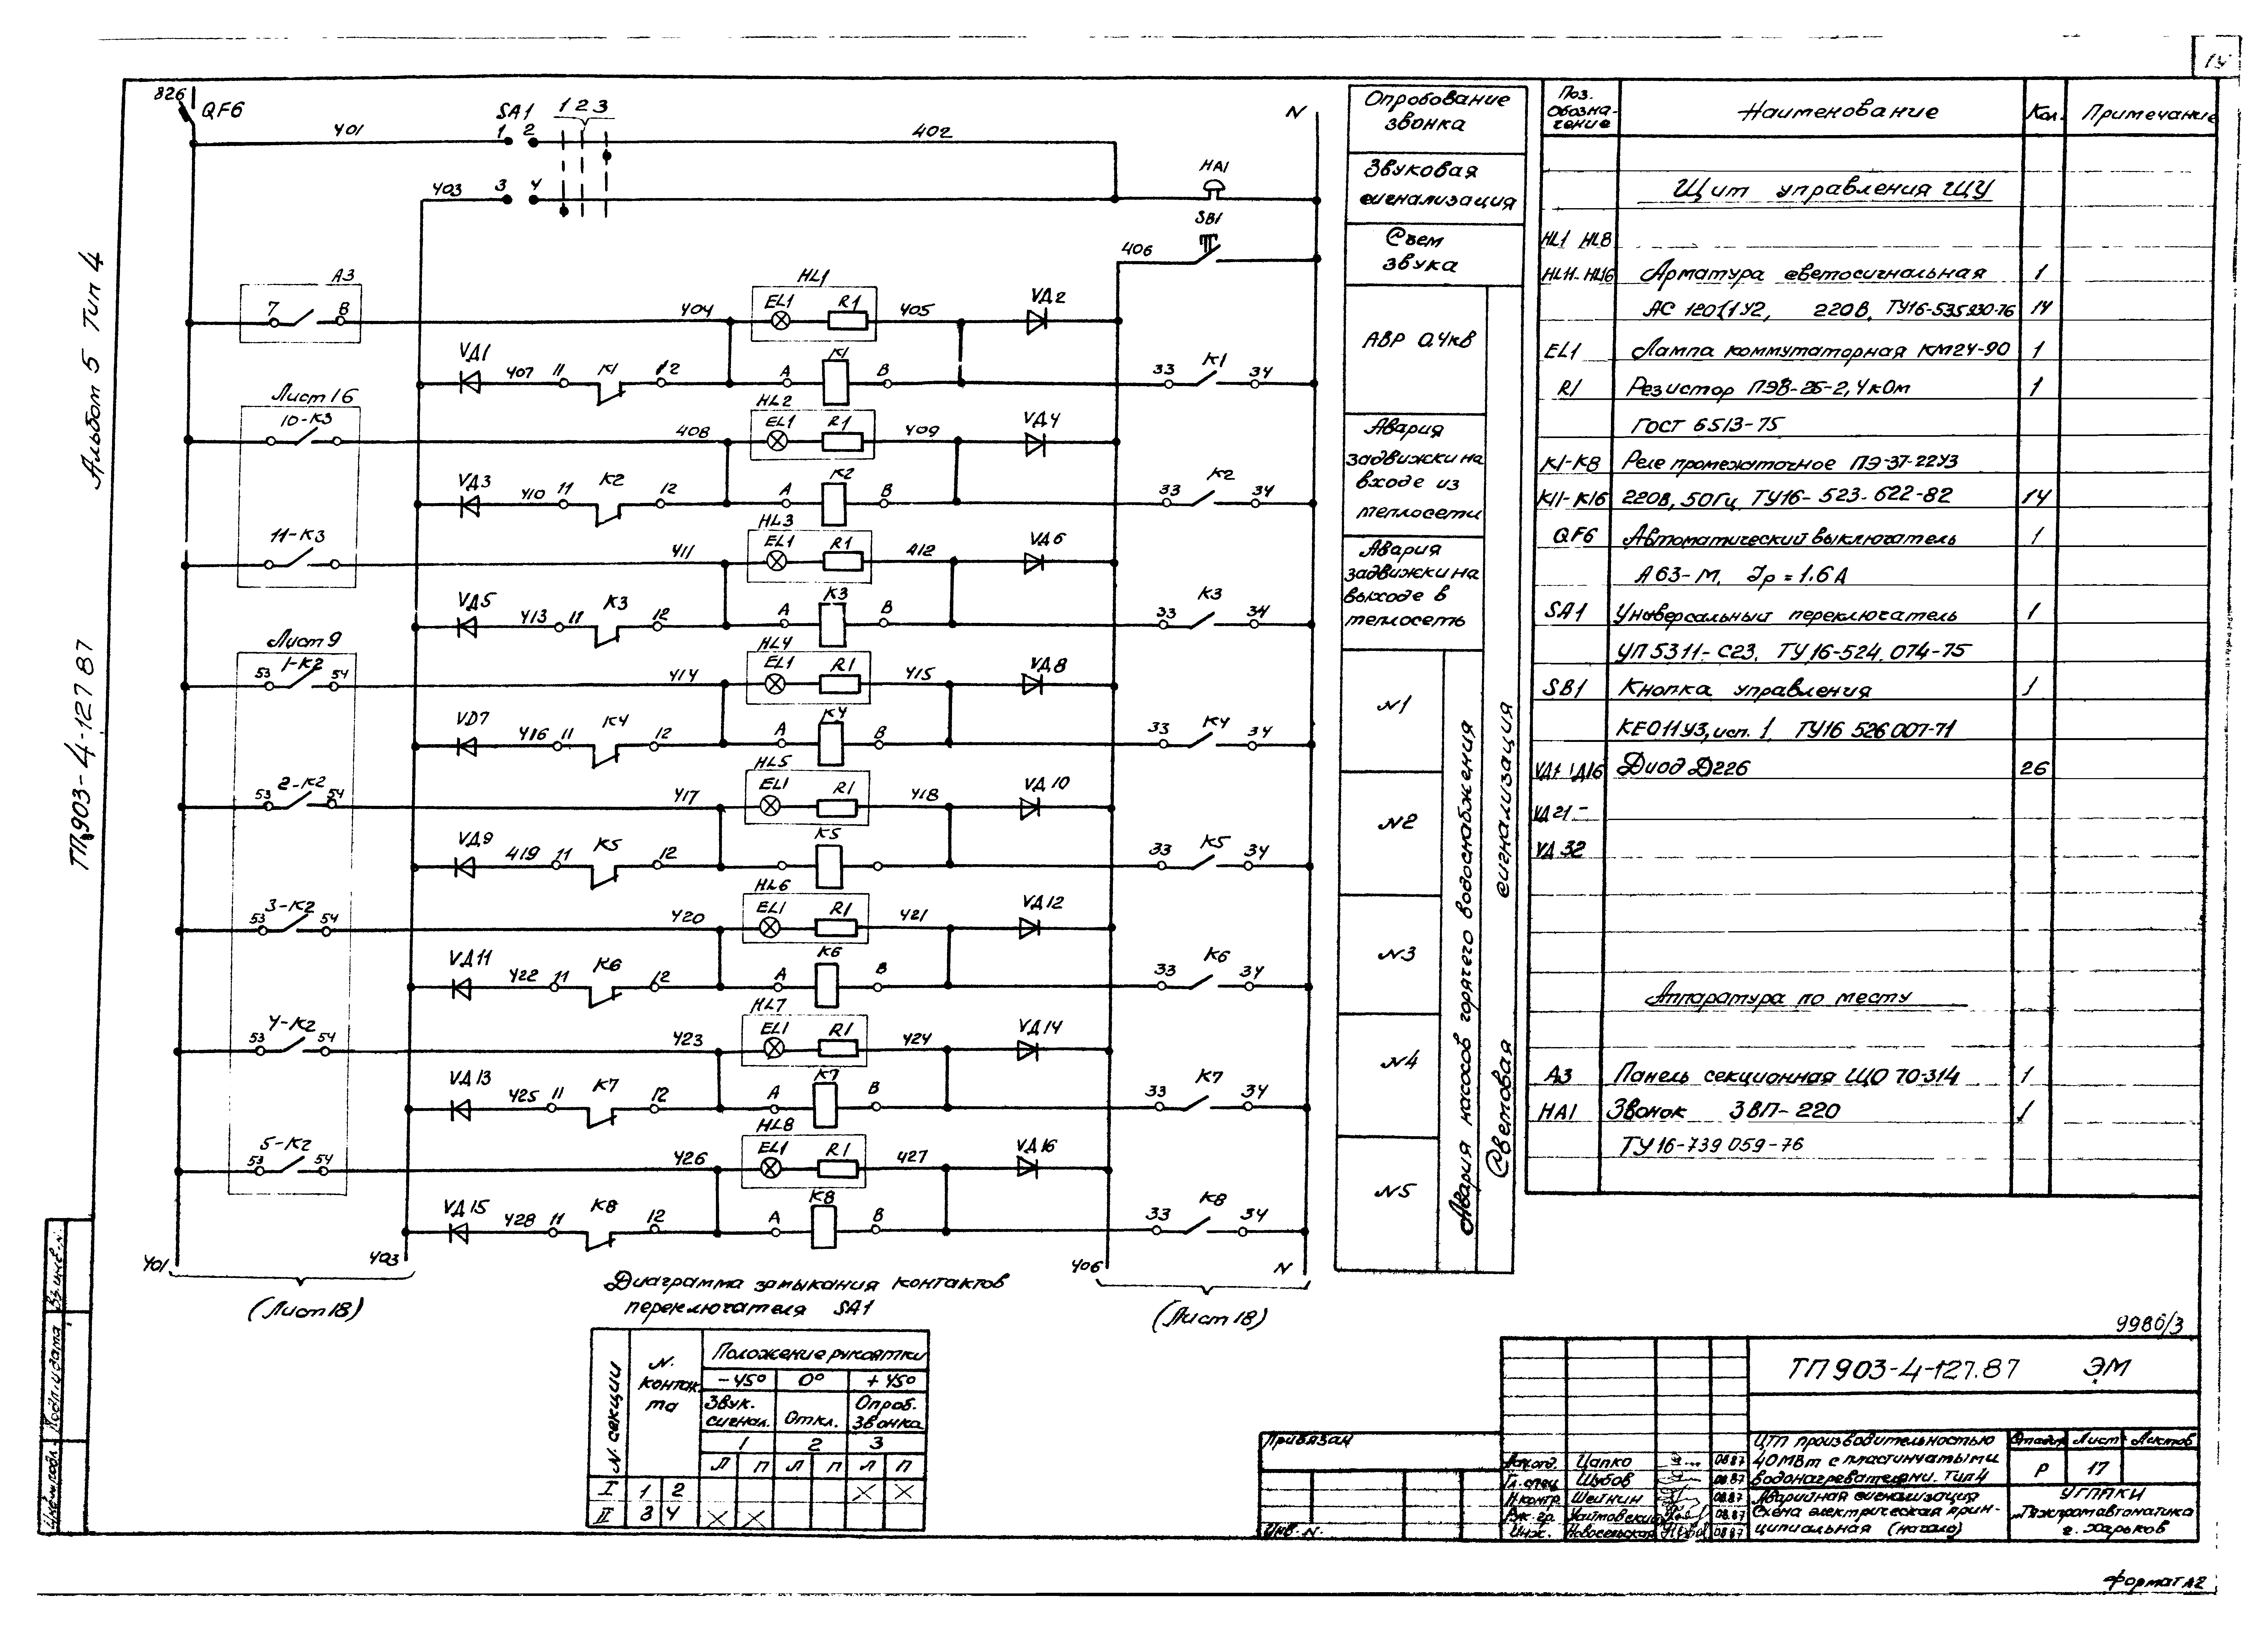 14
826
QF6
SA1
1 2 3
401
1 2
402
N
403
3 4
HA1
SB1
406
A3
7 В
404
HL1
EL1 R1
405
VД2
VД1
407 11 К1 12
А К1 В
33 К1 34
Лист 16
10-К3
408
HL2
EL1 R1
409
VД4
VД3
410 11 К2 12
А К2 В
33 К2 34
11-К3
411
HL3
EL1 R1
412
VД6
VД5
413 11 К3 12
А К3 В
33 К3 34
Лист 9
53 1-К2 54
414
HL4
EL1 R1
415
VД8
VD7
416 11 К4 12
А К4 В
33 К4 34
53 2-К2 54
417
HL5
EL1 R1
418
VД10
VД9
419 11 К5 12
К5
33 К5 34
53 3-К2 54
420
HL6
EL1 R1
421
VД12
VД11
422 11 К6 12
А К6 В
33 К6 34
53 4-К2 54
423
HL7
EL1 R1
424
VД14
VД13
425 11 К7 12
А К7 В
33 К7 34
53 5-К2 54
426
HL8
EL1 R1
427
VД16
VД15
428 11 К8 12
А К8 В
33 К8 34
401
403
406
N
(Лист 18)
(Лист 18)
Альбом 5 Тип 4
ТП 903-4-127 87
Взам. инв. N
Подп. и дата
Инв. N подл.
Опробование
звонка
Звуковая
сигнализация
Съем
звука
АВР 0,4кв
Авария
задвижки на
входе из
теплосети
Авария
задвижки на
выходе в
теплосеть
N1
N2
N3
N4
N5
Авария насосов горячего водоснабжения
Световая сигнализация
Поз.
Обозна-
чение
Наименование
Кол.
Примечание
Щит управления ЩУ
HL1 HL8
HL11. HL16 Арматура светосигнальная 1
АС 12011У2, 220В, ТУ16-535.930-76 14
EL1 Лампа коммутаторная КМ24-90 1
R1 Резистор ПЭВ-25-2,4кОм 1
ГОСТ 6513-75
К1-К8 Реле промежуточное ПЭ-37-22У3
К11-К16 220В, 50Гц, ТУ16-523.622-82 14
QF6 Автоматический выключатель 1
А63-М, Iр=1.6А
SA1 Универсальный переключатель 1
УП5311-С23, ТУ16-524.074-75
SB1 Кнопка управления 1
КЕ011У3, исп. 1, ТУ16 526 007-71
VД1 VД16 Диод Д226 26
VД21-
VД32
Аппаратура по месту
А3 Панель секционная ЩО 70-314 1
HA1 Звонок ЗВП-220 1
ТУ16-739 059-76
Диаграмма замыкания контактов
переключателя SA1
N. секции
N.
контак
та
Положение рукоятки
-45° 0° +45°
Звук.
сигнал.
Откл.
Опроб.
Звонка
1 2 3
Л П Л П Л П
I 1 2 X X
II 3 4 X X
9980/3
ТП 903-4-127.87 ЭМ
Привязан
Инв. N.
Нач. отд. Цапко 08.87
Гл. спец. Шубов 08.87
Н.контр. Шейнин 08.87
Рук. гр. 08.87
Инж. Новосельская 08.87
ЦТП производительностью
40МВт с пластинчатыми
водонагревателями. Тип 4
Стадия Лист Листов
Р 17
Аварийная сигнализация
Схема электрическая прин-
ципиальная (начало)
УГППКИ
"Тяжпромавтоматика
г. Харьков
Формат А2